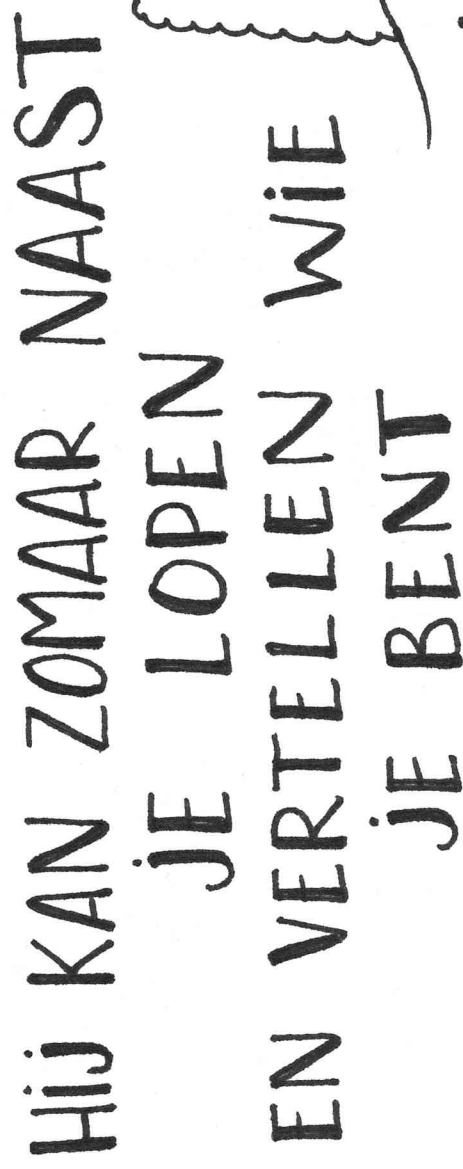 Hij KAN ZOMAAR NAAST
jE LOPEN
EN VERTELLEN WiE
jE BENT